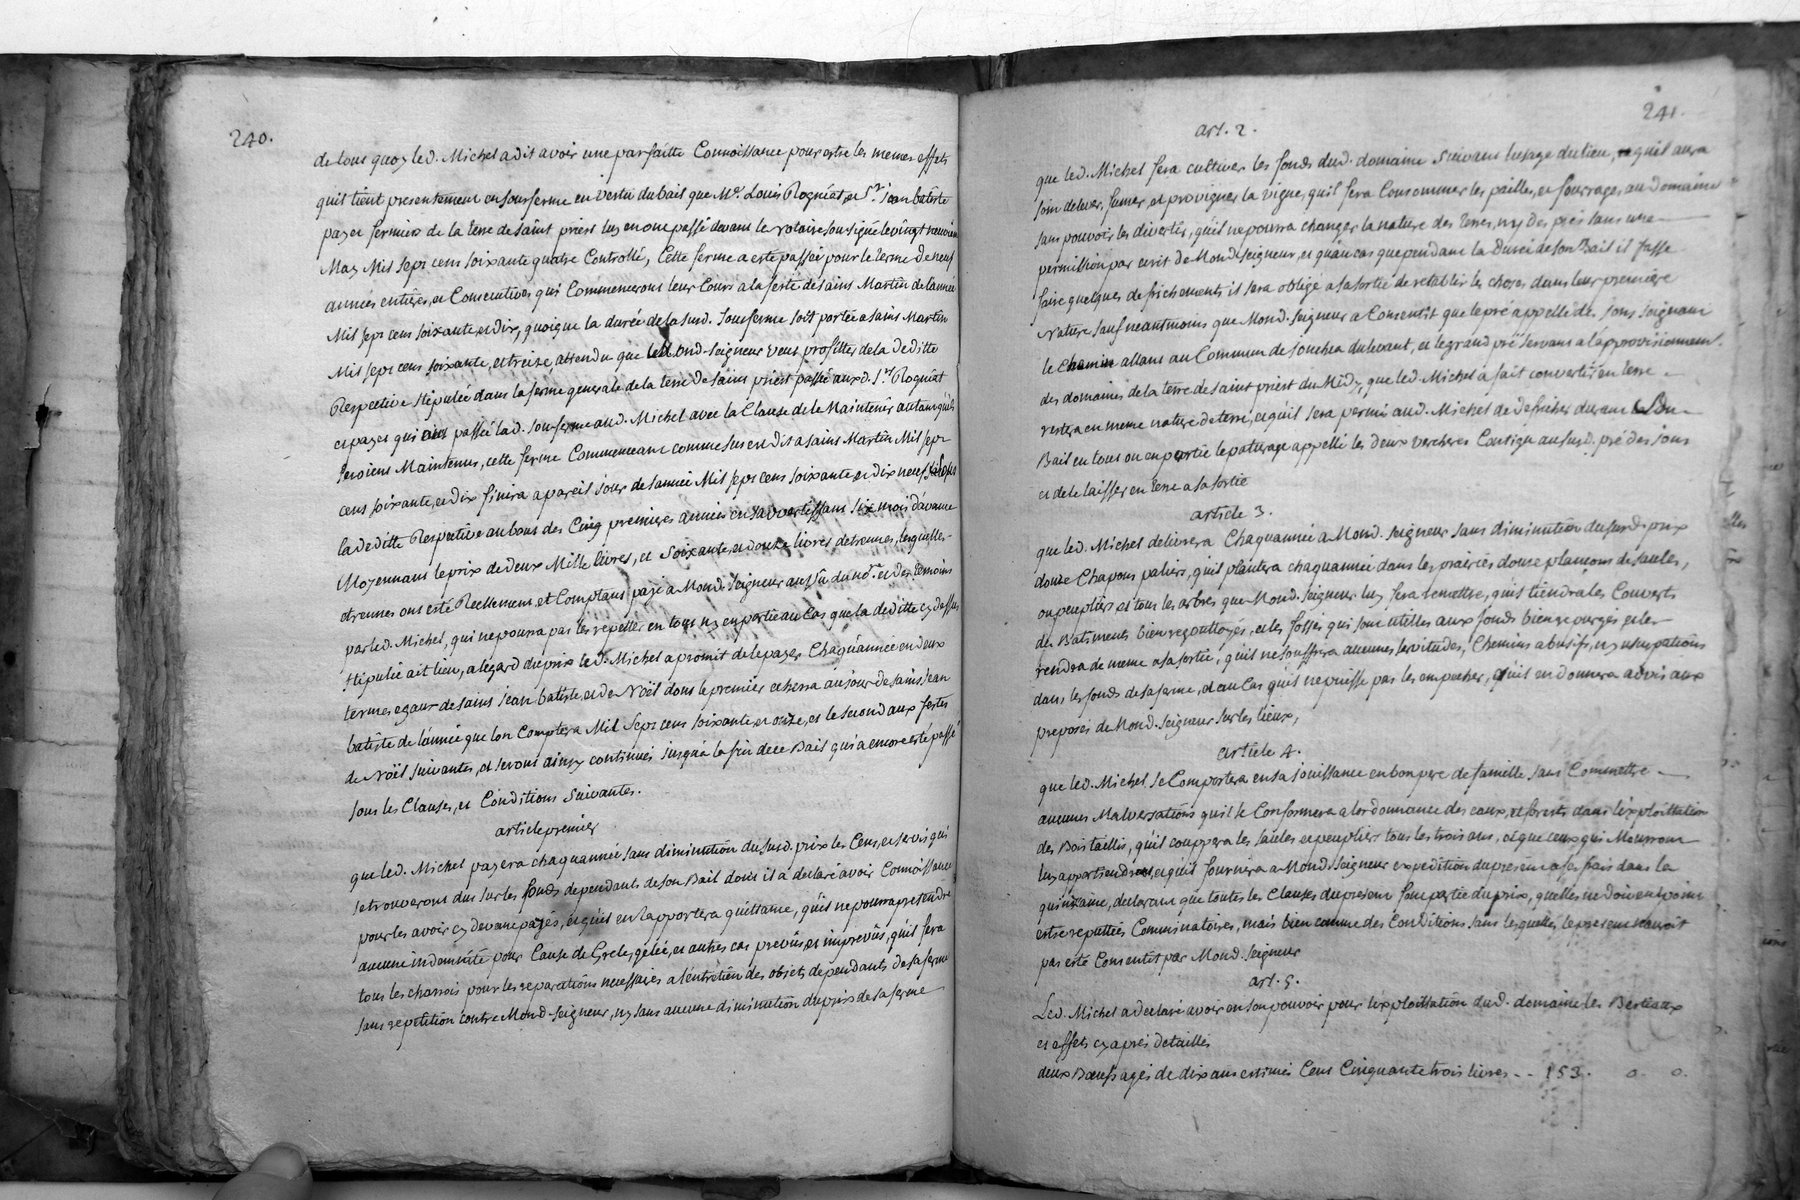 240.
de tous quoy led. Michel a dit avoir une parfaitte Connoissance pour estre les memes effets
quil tient presentement en sousferme en vertu du bail que Me. Louis Rogniat, et Sr. Jean batiste
payer fermiers de la terre de saint priest luy en one passé devant le notaire soussigné le vingt neuvieme
May Mil sept cens soixante quatre Controllé, Cette ferme a esté passée pour le terme de neuf
années entieres, et Consecutives qui Commenceront leur Cours a la feste de saint Martin de l'année
Mil sept cens soixante et dix, quoique la durée de la susd. sousferme soit portée a saint Martin
Mil sept cens soixante, et treize, attendu que Mond. seigneur veut profitter de la deditte
Respective stipulée dans la ferme generale de la terre de saint priest passée auxd. Srs Rogniat
et payer qui ont passé lad. sousferme aud. Michel avec la Clause de le Maintenir autant quils
seroient Maintenus, cette ferme Commenceant comme sus est dit a saint Martin Mil sept
cens soixante, et dix finira a pareil jour de l'année Mil sept cens soixante et dix neuf
la deditte Respective au bout des Cinq premieres années en s'avvertissant six mois d'avance
Moyennant le prix de deux Mille livres, et soixante, et douze livres d'etrennes, lesquelles
etrennes ont esté Reellement, et Comptant payé a Mond. seigneur au vu du nore. et des temoins
par led. Michel, qui ne pourra pas les repetter en tous ny en partie au Cas que la deditte cy dessus
stipulée ait lieu, a legard du prix led. Michel a promit de le payer Chaquannée en deux
termes egaux de saint Jean batiste, et de Noël dont le premier echerra au jour de saint Jean
batiste de l'année que lon Comptera Mil sept cens soixante, et onze, et le second aux festes
de Noël suivantes, et seront ainsy continués jusqu'a la fin de ce Bail qui a encore esté passé
sous les Clauses, et Conditions suivantes.
article premier
que led. Michel payera chaquannée sans diminution du susd. prix les Cens, et servis qui
se trouveront dus sur les fonds dependants de son Bail dont il a declaré avoir Connoissance
pour les avoir cy devant payés, et quil en rapportera quittance, quil ne pourra pretendre
aucune indemnité pour Cause de Grele, gelée, et autres cas prevûs, et imprevûs, quil fera
tous les charrois pour les reparations necessaires a l'entretien des objets dependants de sa ferme
sans repetition contre Mond. seigneur, ny sans aucune diminution du prix de sa ferme
241.
art. 2.
que led. Michel fera cultiver les fonds dud. domaine suivant lusage du lieu, quil aura
soin delever, fumer, et provigner la vigne, quil fera Consommer les pailles, et fourrages au domaine
sans pouvoir les divertir, quil ne pourra changer la nature des terres, ny des prés sans une
permission par ecrit de Mond. seigneur, et qu'au cas que pendant la Durée de son Bail il fasse
faire quelques defrichements il sera obligé a sa sortie de retablir les choses dans leur premiere
Nature sauf neantmoins que Mond. seigneur a Consentit que le pré appellé de sous soignant
le Chemin allant au Commun de souchea du levant, et le grand pré servant a l'approvisionnement
des domaines de la terre de saint priest du Midy, que led. Michel a fait convertir en terre
restera en meme nature de terre, et quil sera permis aud. Michel de defricher durant son
Bail en tous ou en partie le patturage appellé les deux vercheres Contigu au susd. pré des sous
et de le laisser en terre a sa sortie
article 3.
que led. Michel delivrera Chaquannée a Mond. seigneur sans diminution du susd. prix
douze Chapons paliers, quil plantera chaquannée dans les prairies douze plançons de saules,
ou peupliers et tous les arbres que Mond. seigneur luy fera remettre, quil tiendra les Couverts
des Batiments bien regouttoyés, et les fossés qui sont utilles aux fonds bien recurgés, et les
rendra de meme a sa sortie, quil ne souffrira aucunes servitudes, Chemins abusifs, ny usurpations
dans les fonds de sa ferme, et au Cas quil ne puisse pas les empecher, quil en donnera advis aux
preposés de Mond. seigneur sur les lieux,
article 4.
que led. Michel se Comportera en sa jouissance en bon pere de famille sans Commettre
aucunes Malversations quil se Conformera a lordonnance des eaux, et forests dans lexploittation
des Bois taillis, quil couppera les saules et peuplier tous les trois ans, et que ceux qui Mourront
luy appartiendront, et quil fournira a Mond. seigneur expedition du present a ses frais dans la
quinzaine, declarant que toutes les Clauses du present font partie du prix, quelles ne doivent point
estre reputtées Comminatoires, mais bien comme des Conditions sans lesquelles le present nauroit
pas esté Consentit par Mond. seigneur
art. 5.
Led. Michel a declaré avoir en son pouvoir pour lexploittation dud. domaine les Bestiaux
et effets cy aprés detaillés
deux Bœufs agés de dix ans estimés Cent Cinquante trois livres -- 153. 0. 0.